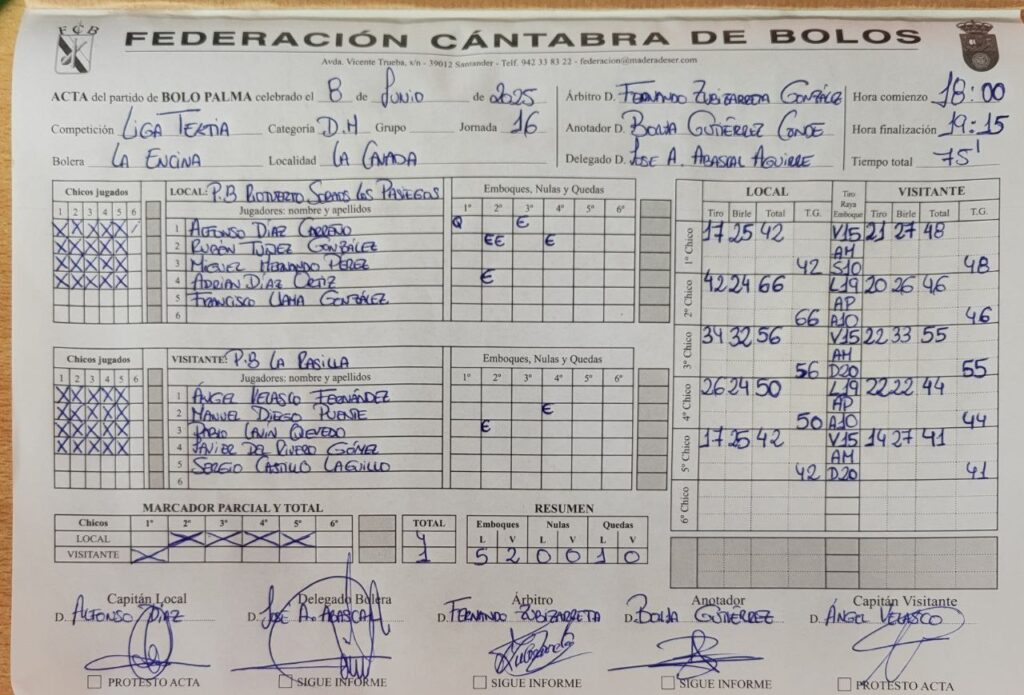 FCB
FEDERACIÓN CÁNTABRA DE BOLOS
Avda. Vicente Trueba, s/n - 39012 Santander - Telf. 942 33 83 22 - federacion@maderadeser.com
ACTA del partido de BOLO PALMA celebrado el 8 de JUNIO de 2025
Competición LIGA TERTIA Categoría D.H Grupo Jornada 16
Bolera LA ENCINA Localidad LA CAVADA
Árbitro D. FERNANDO ZUBIZARRETA GONZÁLEZ
Anotador D. BORJA GUTIÉRREZ CONDE
Delegado D. JOSE A. ABASCAL AGUIRRE
Hora comienzo 18:00
Hora finalización 19:15
Tiempo total 75'
Chicos jugados
1 2 3 4 5 6
LOCAL: P.B RIOTUERTO SOBAOS LOS PASIEGOS
Jugadores: nombre y apellidos
Emboques, Nulas y Quedas
1º 2º 3º 4º 5º 6º
X X X X X / 1 ALFONSO DÍAZ CARREÑO Q € 
X X X X X 2 RUBÉN TÚÑEZ GONZÁLEZ €€ €
X X X X X 3 MIGUEL HERNANDO PÉREZ
X X X X X 4 ADRIÁN DÍAZ ORTIZ €
5 FRANCISCO LLAMA GONZÁLEZ
6
Chicos jugados
1 2 3 4 5 6
VISITANTE: P.B LA RASILLA
Jugadores: nombre y apellidos
Emboques, Nulas y Quedas
1º 2º 3º 4º 5º 6º
X X X X X 1 ÁNGEL VELASCO FERNÁNDEZ
X X X X X 2 MANUEL DIEGO PUENTE €
X X X X X 3 PABLO LAVÍN QUEVEDO €
X X X X X 4 JAVIER DEL RIVERO GÓMEZ
5 SERGIO CASTILLO CAGUILLO
6
LOCAL Tiro Raya Emboque VISITANTE
Tiro Birle Total T.G. Tiro Birle Total T.G.
1º Chico 17 25 42 V15 21 27 48
AM
42 S10 48
2º Chico 42 24 66 L19 20 26 46
AP
66 A10 46
3º Chico 34 32 56 V15 22 33 55
AM
56 D20 55
4º Chico 26 24 50 L19 22 22 44
AP
50 A10 44
5º Chico 17 25 42 V15 14 27 41
AM
42 D20 41
6º Chico
MARCADOR PARCIAL Y TOTAL
Chicos 1º 2º 3º 4º 5º 6º TOTAL
LOCAL X X X X 4
VISITANTE X 1
RESUMEN
Emboques Nulas Quedas
L V L V L V
5 2 0 0 1 0
Capitán Local
D. ALFONSO DÍAZ
PROTESTO ACTA
Delegado Bolera
D. JOSÉ A. ABASCAL
SIGUE INFORME
Árbitro
D. FERNANDO ZUBIZARRETA
SIGUE INFORME
Anotador
D. BORJA GUTIÉRREZ
SIGUE INFORME
Capitán Visitante
D. ÁNGEL VELASCO
PROTESTO ACTA